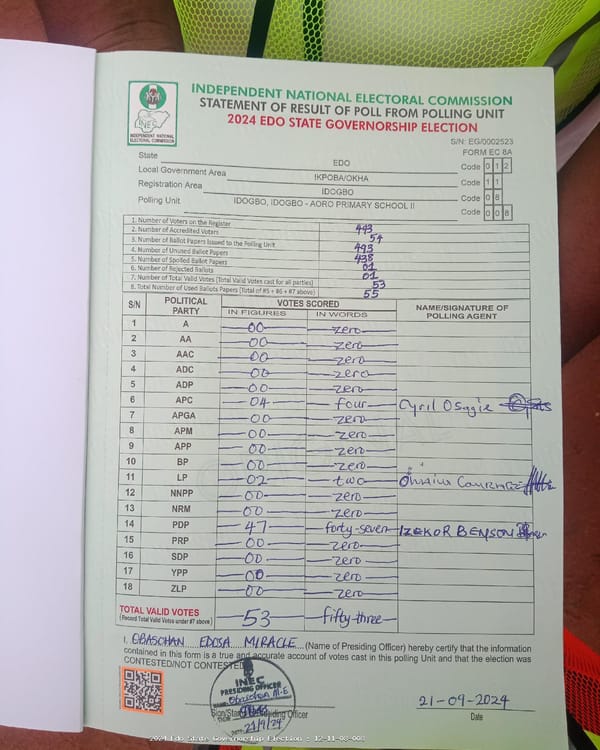 INDEPENDENT NATIONAL ELECTORAL COMMISSION
STATEMENT OF RESULT OF POLL FROM POLLING UNIT
2024 EDO STATE GOVERNORSHIP ELECTION
INEC
INDEPENDENT NATIONAL ELECTORAL COMMISSION
S/N: EG/0002523
FORM EC 8A
State EDO Code 0 1 2
Local Government Area IKPOBA/OKHA Code 1 1
Registration Area IDOGBO Code 0 8
Polling Unit IDOGBO, IDOGBO - AORO PRIMARY SCHOOL II Code 0 0 8
1. Number of Voters on the Register 493
2. Number of Accredited Voters 54
3. Number of Ballot Papers Issued to the Polling Unit 493
4. Number of Unused Ballot Papers 438
5. Number of Spoiled Ballot Papers 01
6. Number of Rejected Ballots 01
7. Number of Total Valid Votes (Total Valid Votes cast for all parties) 53
8. Total Number of Used Ballots Papers (Total of #5 + #6 + #7 above) 55
S/N POLITICAL PARTY VOTES SCORED NAME/SIGNATURE OF POLLING AGENT
IN FIGURES IN WORDS
1 A 00 zero
2 AA 00 zero
3 AAC 00 zero
4 ADC 00 zero
5 ADP 00 zero
6 APC 04 four Cyril Osagie
7 APGA 00 zero
8 APM 00 zero
9 APP 00 zero
10 BP 00 zero
11 LP 02 two COURAGE
12 NNPP 00 zero
13 NRM 00 zero
14 PDP 47 forty-seven IZEKOR BENSON
15 PRP 00 zero
16 SDP 00 zero
17 YPP 00 zero
18 ZLP 00 zero
TOTAL VALID VOTES 53 fifty three
(Record Total Valid Votes under #7 above)
I, OBASOHAN EDOSA MIRACLE (Name of Presiding Officer) hereby certify that the information
contained in this form is a true and accurate account of votes cast in this polling Unit and that the election was
CONTESTED/NOT CONTESTED
INEC
PRESIDING OFFICER
NAME: Obasohan M.E
Sign/Stamp Presiding Officer
DATE: 21/9/24
21-09-2024
Date
2024 Edo State Governorship Election : 12-11-08-008